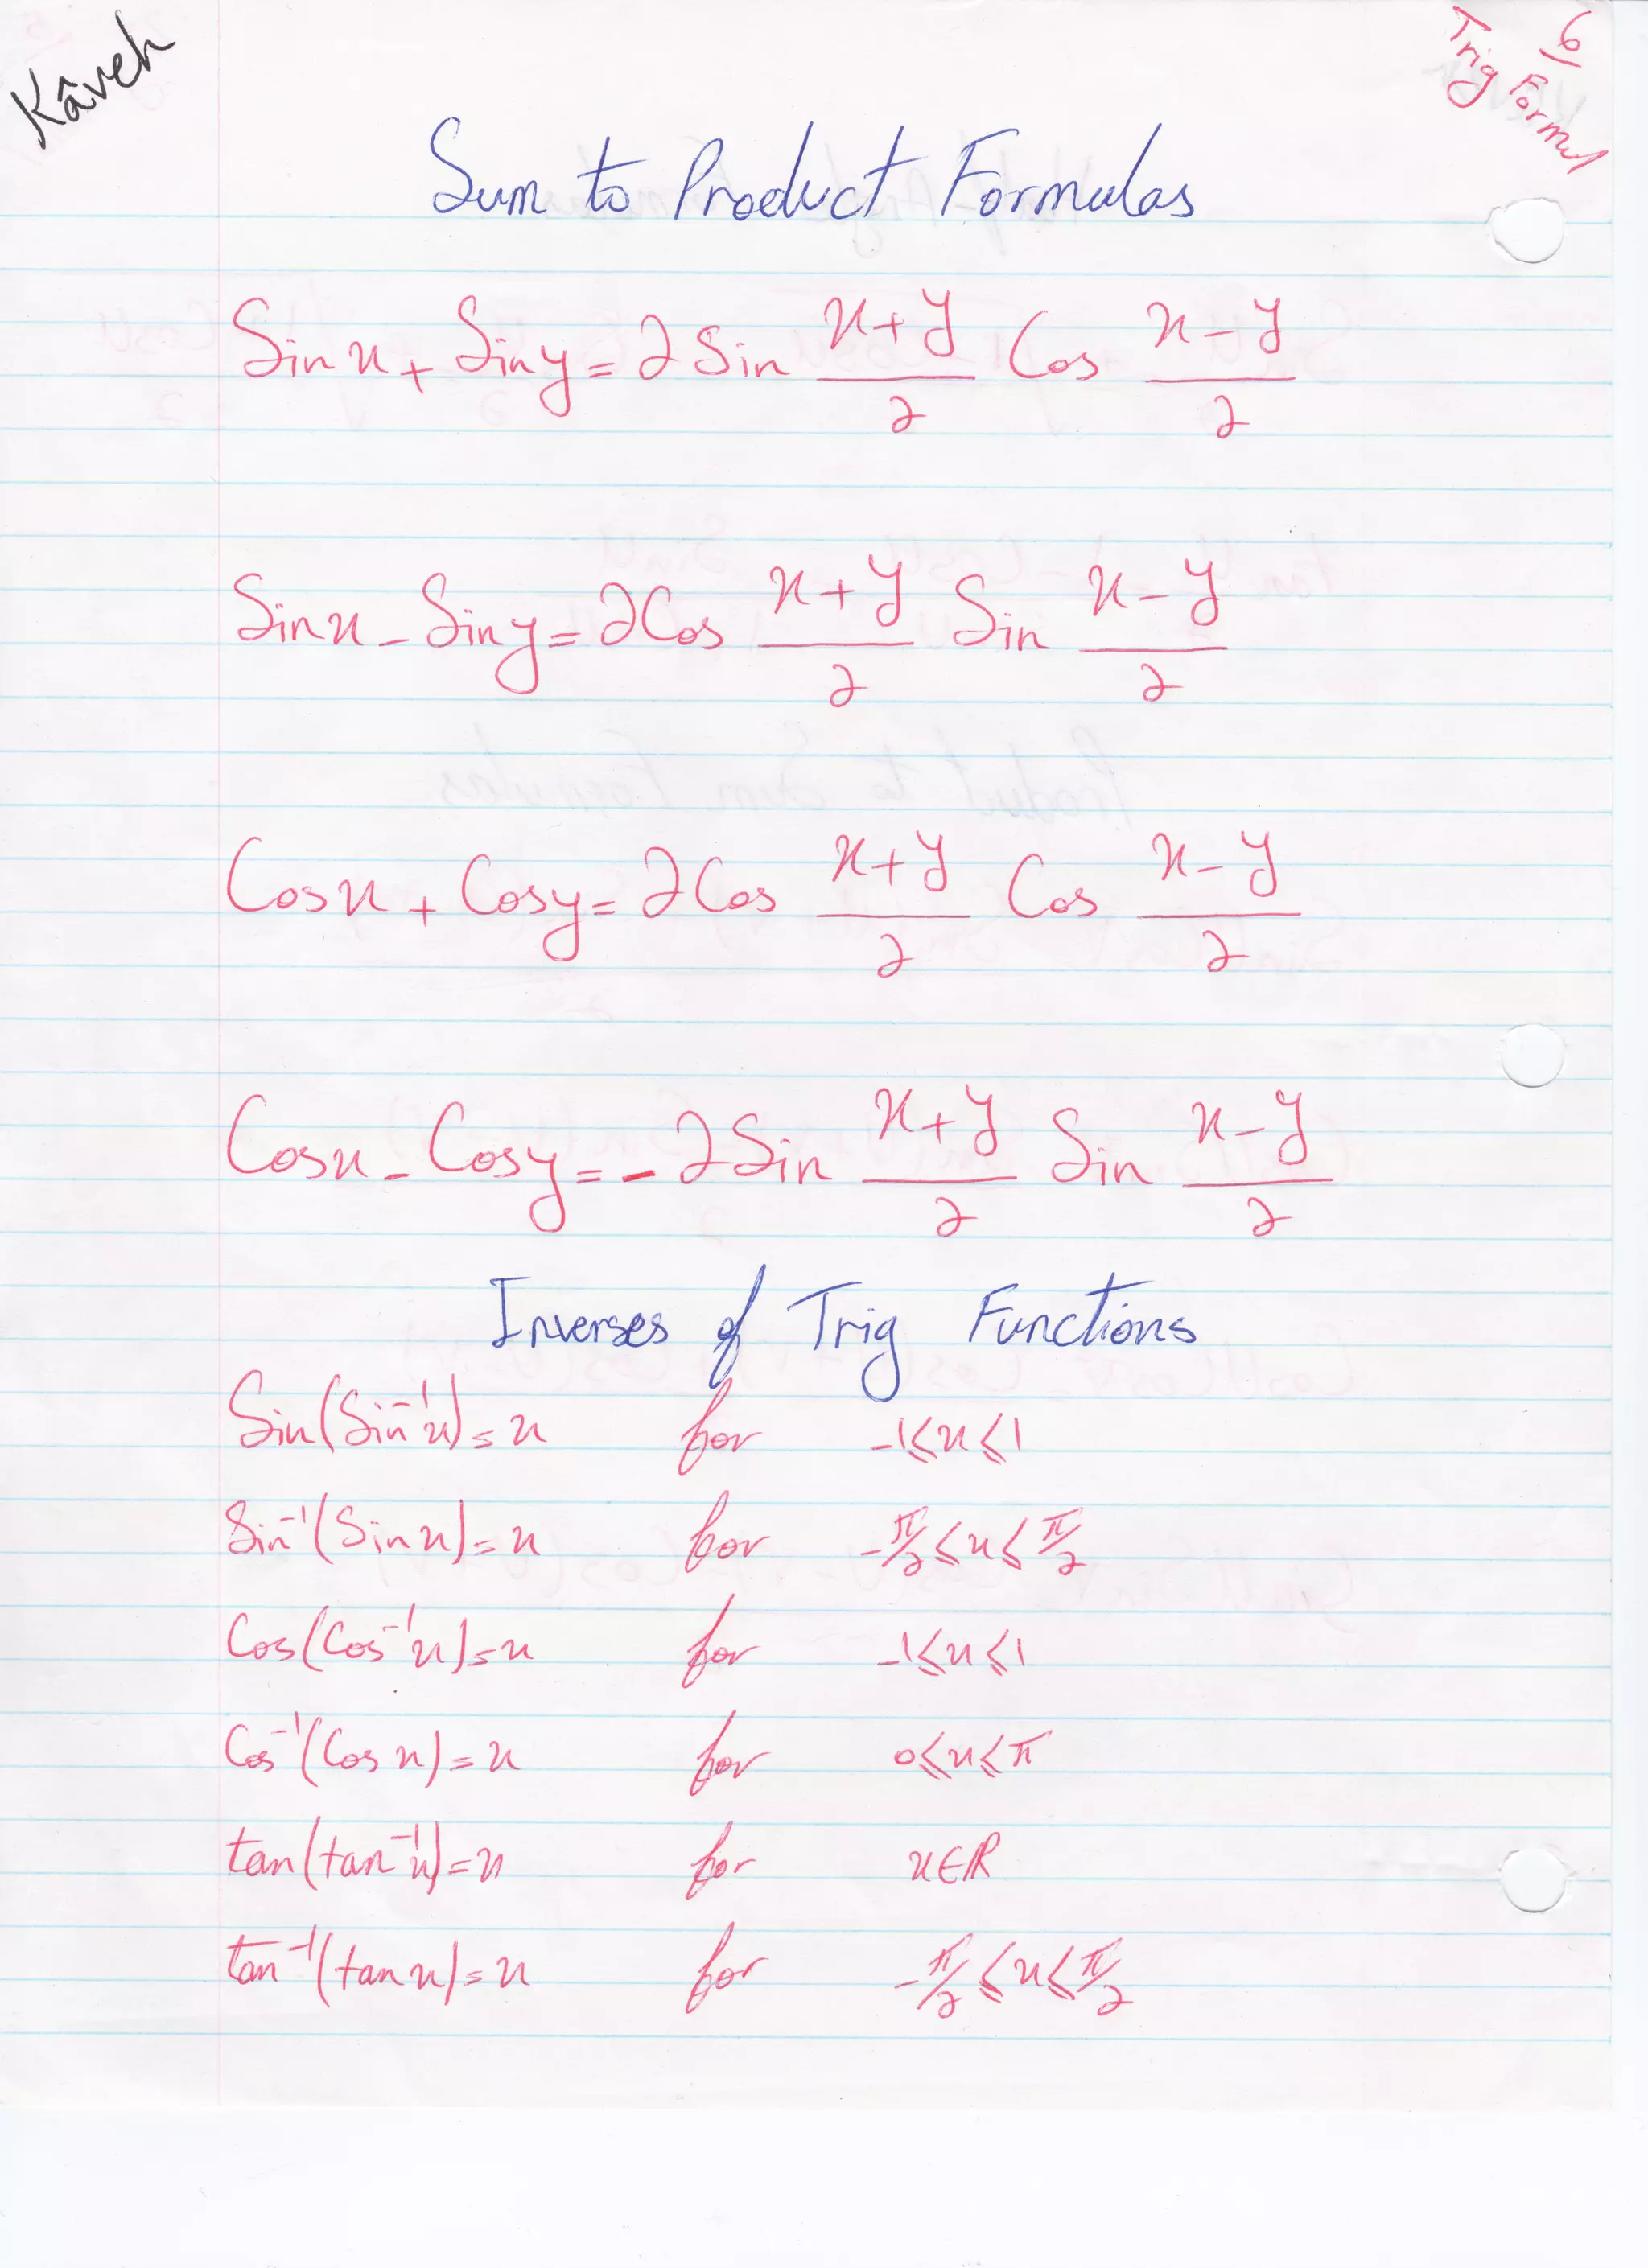 Kâveh
6
Trig Formul
Sum to Product Formulas
Sin x + Sin y = 2 Sin (x+y)/2 Cos (x-y)/2
Sin x - Sin y = 2 Cos (x+y)/2 Sin (x-y)/2
Cos x + Cos y = 2 Cos (x+y)/2 Cos (x-y)/2
Cos x - Cos y = -2 Sin (x+y)/2 Sin (x-y)/2
Inverses of Trig Functions
Sin(Sin⁻¹x) = x for -1 ⩽ x ⩽ 1
Sin⁻¹(Sin x) = x for -π/2 ⩽ x ⩽ π/2
Cos(Cos⁻¹x) = x for -1 ⩽ x ⩽ 1
Cos⁻¹(Cos x) = x for 0 ⩽ x ⩽ π
tan(tan⁻¹x) = x for x∈ℝ
tan⁻¹(tan x) = x for -π/2 ⩽ x ⩽ π/2